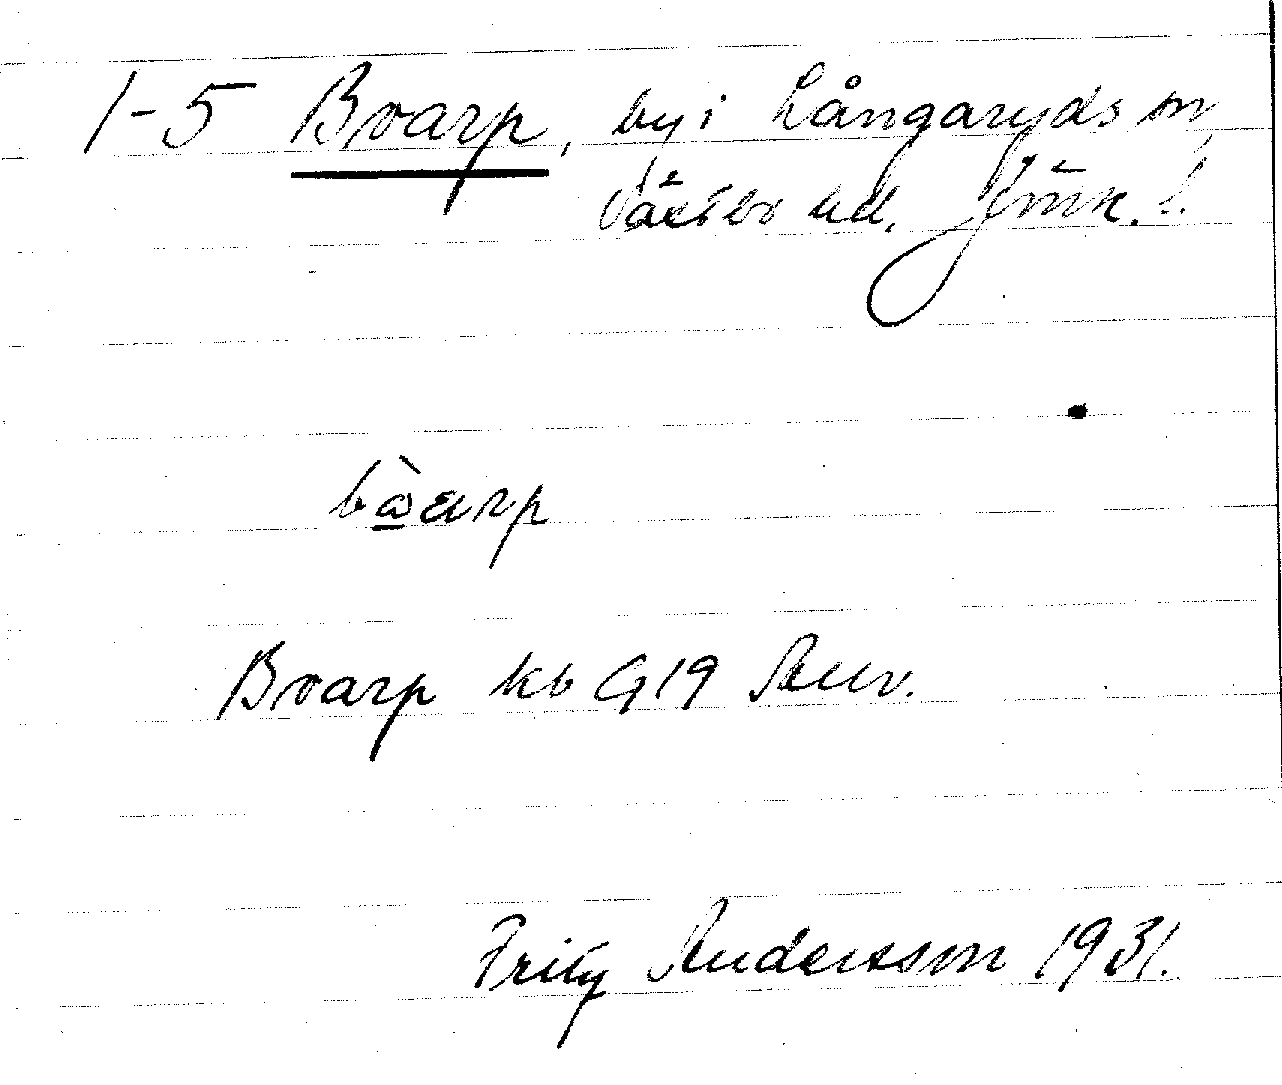 1-5 Boarp, by i Långaryds sn,
Västbo hd, Jönk. l.
bò̲arp
Boarp kb G19 Anv.
Fritz Andersson 1931.